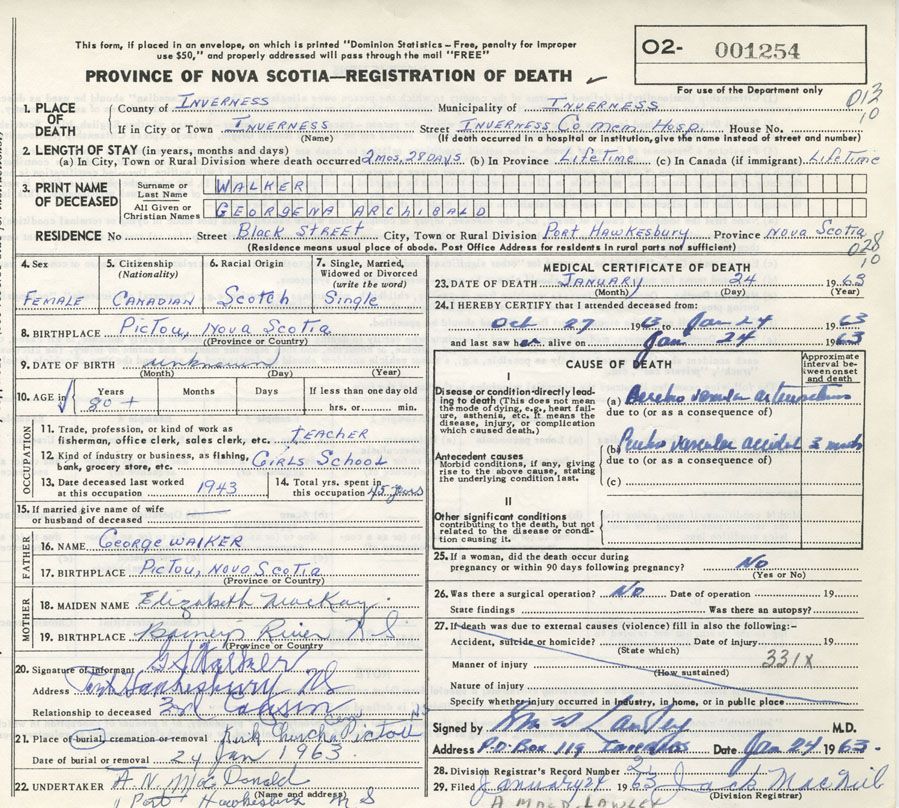 This form, if placed in an envelope, on which is printed "Dominion Statistics – Free, penalty for improper
use $50," and properly addressed will pass through the mail "FREE"
O2- 001254
PROVINCE OF NOVA SCOTIA—REGISTRATION OF DEATH
For use of the Department only
1. PLACE OF DEATH
County of INVERNESS Municipality of INVERNESS
013
10
If in City or Town INVERNESS Street INVERNESS Co. Mem. Hosp. House No.
(Name) (If death occurred in a hospital or institution, give the name instead of street and number)
2. LENGTH OF STAY (in years, months and days)
(a) In City, Town or Rural Division where death occurred 2 mos, 28 DAYS (b) In Province LifeTime (c) In Canada (if immigrant) LifeTime
3. PRINT NAME OF DECEASED
Surname or Last Name WALKER
All Given or Christian Names GEORGENA ARCHIBALD
RESIDENCE No Street Black STREET City, Town or Rural Division Port Hawkesbury Province Nova Scotia
(Residence means usual place of abode. Post Office Address for residents in rural parts not sufficient)
028
10
4. Sex
FEMALE
5. Citizenship (Nationality)
CANADIAN
6. Racial Origin
Scotch
7. Single, Married, Widowed or Divorced (write the word)
Single
8. BIRTHPLACE PicTou, Nova Scotia
(Province or Country)
9. DATE OF BIRTH unknown
(Month) (Day) (Year)
10. AGE in
Years Months Days If less than one day old
80 + hrs. or min.
OCCUPATION
11. Trade, profession, or kind of work as
fisherman, office clerk, sales clerk, etc. TEACHER
12. Kind of industry or business, as fishing,
bank, grocery store, etc. GIRLS School
13. Date deceased last worked
at this occupation 1943
14. Total yrs. spent in
this occupation 45 years
15. If married give name of wife
or husband of deceased
FATHER
16. NAME George WALKER
17. BIRTHPLACE PicTou, Nova Scotia
(Province or Country)
MOTHER
18. MAIDEN NAME Elizabeth MacKay
19. BIRTHPLACE Barney's River N S
(Province or Country)
20. Signature of informant G S Walker
Address Port Hawkesbury NS
Relationship to deceased 3rd Cousin
21. Place of burial, cremation or removal Kirk Church Cem Pictou NS
Date of burial or removal 24 Jan 1963
22. UNDERTAKER A. N. MacDonald
(Name and address)
Port Hawkesbury N S
MEDICAL CERTIFICATE OF DEATH
23. DATE OF DEATH JANUARY 24 1963
(Month) (Day) (Year)
24. I HEREBY CERTIFY that I attended deceased from:
Oct 27 19 to Jan 24 1963
and last saw her alive on Jan 24 1963
CAUSE OF DEATH
Approximate interval between onset and death
I
Disease or condition directly leading to death (This does not mean the mode of dying, e.g., heart failure, asthenia, etc. It means the disease, injury, or complication which caused death.)
(a)
due to (or as a consequence of)
Antecedent causes
Morbid conditions, if any, giving rise to the above cause, stating the underlying condition last.
(b) vascular accident 3 months
due to (or as a consequence of)
(c)
II
Other significant conditions
contributing to the death, but not related to the disease or condition causing it.
25. If a woman, did the death occur during
pregnancy or within 90 days following pregnancy? No
(Yes or No)
26. Was there a surgical operation? No Date of operation 19
State findings Was there an autopsy?
27. If death was due to external causes (violence) fill in also the following:–
Accident, suicide or homicide? Date of injury 19
(State which)
331X
Manner of injury
(How sustained)
Nature of injury
Specify whether injury occurred in industry, in home, or in public place
Signed by M.D.
Address P.O. Box 119 Date Jan 24 1963.
28. Division Registrar's Record Number 2
29. Filed January 24 1963 Jack MacNeil
(Division Registrar)